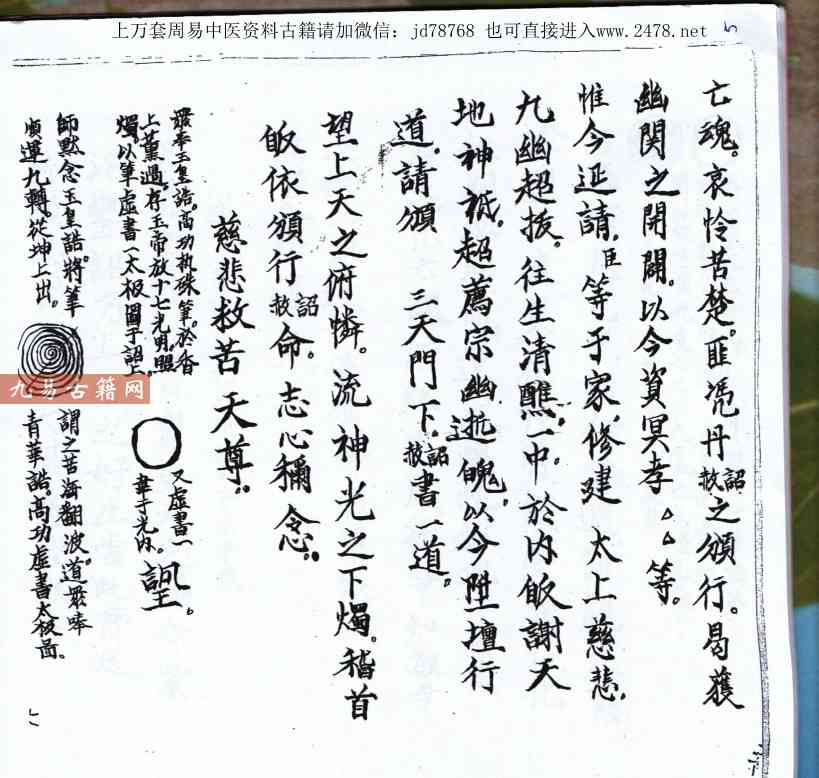 上万套周易中医资料古籍请加微信：jd78768 也可直接进入www.2478.net
5
亡魂。哀怜苦楚。匪凭丹詔赦之頒行。曷獲
幽関之開闢。以今資冥孝厶厶等。
惟今延請。臣等于家修建 太上慈悲。
九幽超拔。往生清醮一中。於内皈謝天
地神祇。超薦宗幽魄。以今陞壇行
道。請頒 三天門下。詔赦書一道。
望上天之俯憐。流神光之下燭。稽首
皈依頒行詔赦命。志心稱念。
慈悲救苦天尊。
眾奉玉皇誥。高功执硃筆。於香
上薰過。存玉帝放十七光明。照
燭。以筆虛書一太极圖于詔上
又虛書一
字于光内。
師默念玉皇誥。將筆
順運九轉。從坤上出。
謂之苦海翻波。道眾舉
青華誥。高功虛書太极啚。
九易古籍网